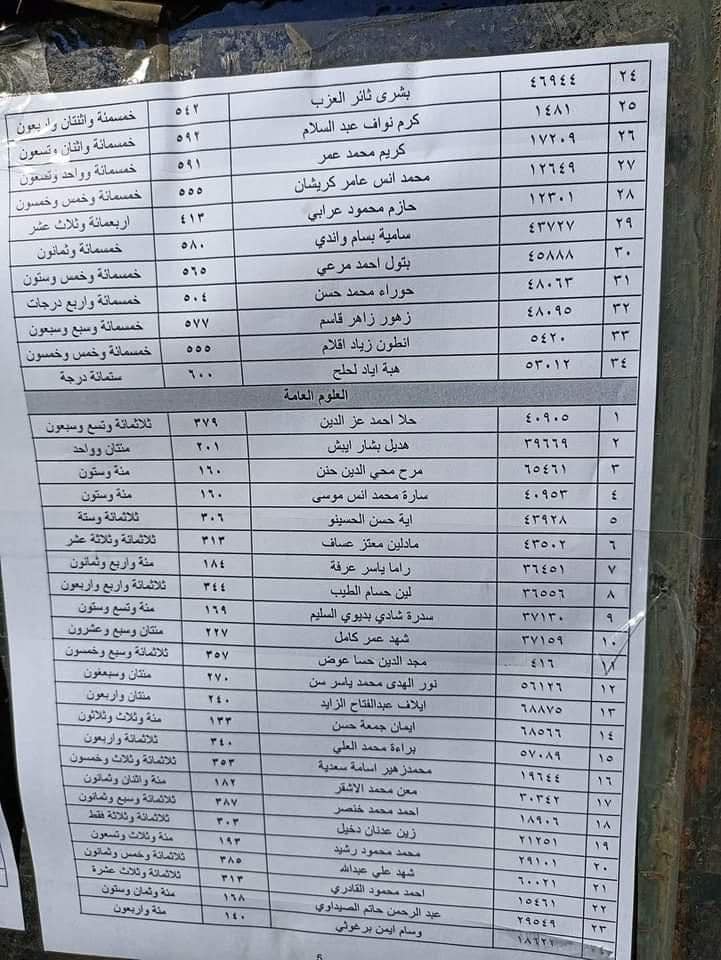 ٢٤ ٤٦٩٤٤ بشرى ثائر العزب ٥٤٢ خمسمئة واثنتان واربعون
٢٥ ١٤٨١ كرم نواف عبد السلام ٥٩٢ خمسمائة واثنان وتسعون
٢٦ ١٧٢٠٩ كريم محمد عمر ٥٩١ خمسمائة وواحد وتسعون
٢٧ ١٢٦٤٩ محمد انس عامر كريشان ٥٥٥ خمسمائة وخمس وخمسون
٢٨ ١٢٣٠١ حازم محمود عرابي ٤١٣ اربعمائة وثلاث عشر
٢٩ ٤٣٧٢٧ سامية بسام واندي ٥٨٠ خمسمائة وثمانون
٣٠ ٤٥٨٨٨ بتول احمد مرعي ٥٦٥ خمسمائة وخمس وستون
٣١ ٤٨٠٦٣ حوراء محمد حسن ٥٠٤ خمسمائة واربع درجات
٣٢ ٤٨٠٩٥ زهور زاهر قاسم ٥٧٧ خمسمائة وسبع وسبعون
٣٣ ٥٤٢٠ انطون زياد اقلام ٥٥٥ خمسمائة وخمس وخمسون
٣٤ ٥٣٠١٢ هبة اياد لحلح ٦٠٠ ستمائة درجة
العلوم العامة
١ ٤٠٩٠٥ حلا احمد عز الدين ٣٧٩ ثلاثمائة وتسع وسبعون
٢ ٣٩٦٦٩ هديل بشار ايبش ٢٠١ مئتان وواحد
٣ ٦٥٤٦١ مرح محي الدين حنن ١٦٠ مئة وستون
٤ ٤٠٩٥٣ سارة محمد انس موسى ١٦٠ مئة وستون
٥ ٤٣٩٢٨ اية حسن الحسينو ٣٠٦ ثلاثمائة وستة
٦ ٤٣٥٠٢ مادلين معتز عساف ٣١٣ ثلاثمائة وثلاثة عشر
٧ ٣٦٤٥١ راما ياسر عرفة ١٨٤ مئة واربع وثمانون
٨ ٣٦٥٥٦ لين حسام الطيب ٣٤٤ ثلاثمائة واربع واربعون
٩ ٣٧١٣٠ سدرة شادي بديوي السليم ١٦٩ مئة وتسع وستون
١٠ ٣٧١٥٩ شهد عمر كامل ٢٢٧ مئتان وسبع وعشرون
١١ ٤١٦ مجد الدين حسا عوض ٣٥٧ ثلاثمائة وسبع وخمسون
١٢ ٥٦١٢٦ نور الهدى محمد ياسر سن ٢٧٠ مئتان وسبعغون
١٣ ٦٨٨٧٥ ايلاف عبدالفتاح الزايد ٢٤٠ مئتان واربعون
١٤ ٦٨٥٦٦ ايمان جمعة حسن ١٣٣ مئة وثلاث وثلاثون
١٥ ٥٧٠٨٩ براءة محمد العلي ٣٤٠ ثلاثمائة واربعون
١٦ ١٩٦٤٤ محمدزهير اسامة سعدية ٣٥٣ ثلاثمائة وثلاث وخمسون
١٧ ٣٠٣٤٢ معن محمد الاشقر ١٨٢ مئة واثنان وثمانون
١٨ ١٨٩٠٦ احمد محمد خنصر ٣٨٧ ثلاثمائة وسبع وثمانون
١٩ ٢١٢٥١ زين عدنان دخيل ٣٠٣ ثلاثمائة وثلاثة فقط
٢٠ ٢٩١٠١ محمد محمود رشيد ١٩٣ مئة وثلاث وتسعون
٢١ ٦٠٠٢١ شهد علي عبدالله ٣٨٥ ثلاثمائة وخمس وثمانون
٢٢ ١٥٤٦١ احمد محمود القادري ٣١٣ ثلاثمائة وثلاث عشرة
٢٣ ٢٩٥٤٩ عبد الرحمن حاتم الصيداوي ١٦٨ مئة وثمان وستون
وسام ايمن برغوثي ١٤٠ مئة واربعون